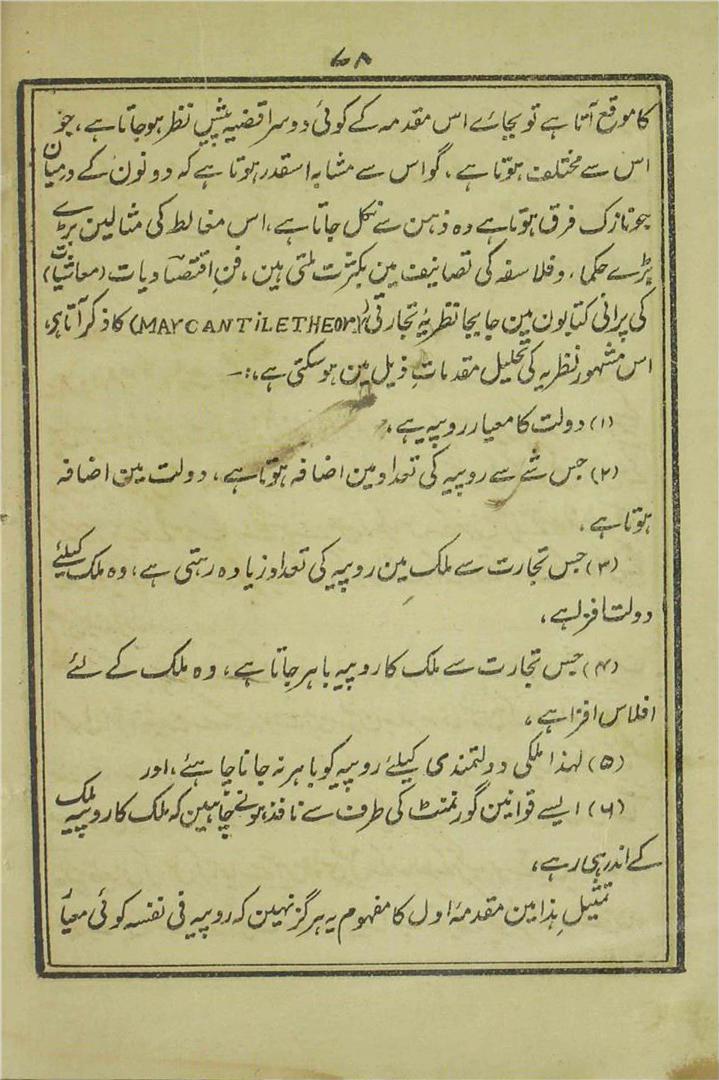 ۶۸
کا موقع آتا ہے تو بجائے اس مقدمہ کے کوئی دوسرا قضیہ پیش نظر ہو جاتا ہے، جو
اس سے مختلف ہوتا ہے، گو اس سے مشابہ اسقدر ہوتا ہے کہ دونون کے درمیان
جو نازک فرق ہوتا ہے وہ ذہن سے نکل جاتا ہے، اس مغالطہ کی مثالین بڑے
بڑے حکما، و فلاسفہ کی تصانیف مین بکثرت ملتی ہین، فنِ اقتصادیات (معاشیات)
کی پرانی کتابون مین جابجا نظریۂ تجارتی (MARCANTiLE THEORY) کا ذکر آتا ہی،
اس مشہور نظریہ کی تحلیل مقدماتِ ذیل مین ہو سکتی ہے،:۔
(۱) دولت کا معیار روپیہ ہے،
(۲) جس شے سے روپیہ کی تعداد مین اضافہ ہوتا ہے، دولت مین اضافہ
ہوتا ہے،
(۳) جس تجارت سے ملک مین روپیہ کی تعداد زیادہ رہتی ہے، وہ ملک کیلئے
دولت افزا ہے،
(۴) جس تجارت سے ملک کا روپیہ باہر جاتا ہے، وہ ملک کے لئے
افلاس افزا ہے،
(۵) لہذا ملکی دولتمندی کیلئے روپیہ کو باہر نہ جانا چاہئے، اور
(۶) ایسے قوانین گورنمنٹ کی طرف سے نافذ ہونے چاہیین کہ ملک کا روپیہ ملک
کے اندر ہی رہے،
تمثیل ہذا مین مقدمۂ اول کا مفہوم یہ ہرگز نہین کہ روپیہ فی نفسہ کوئی معیار